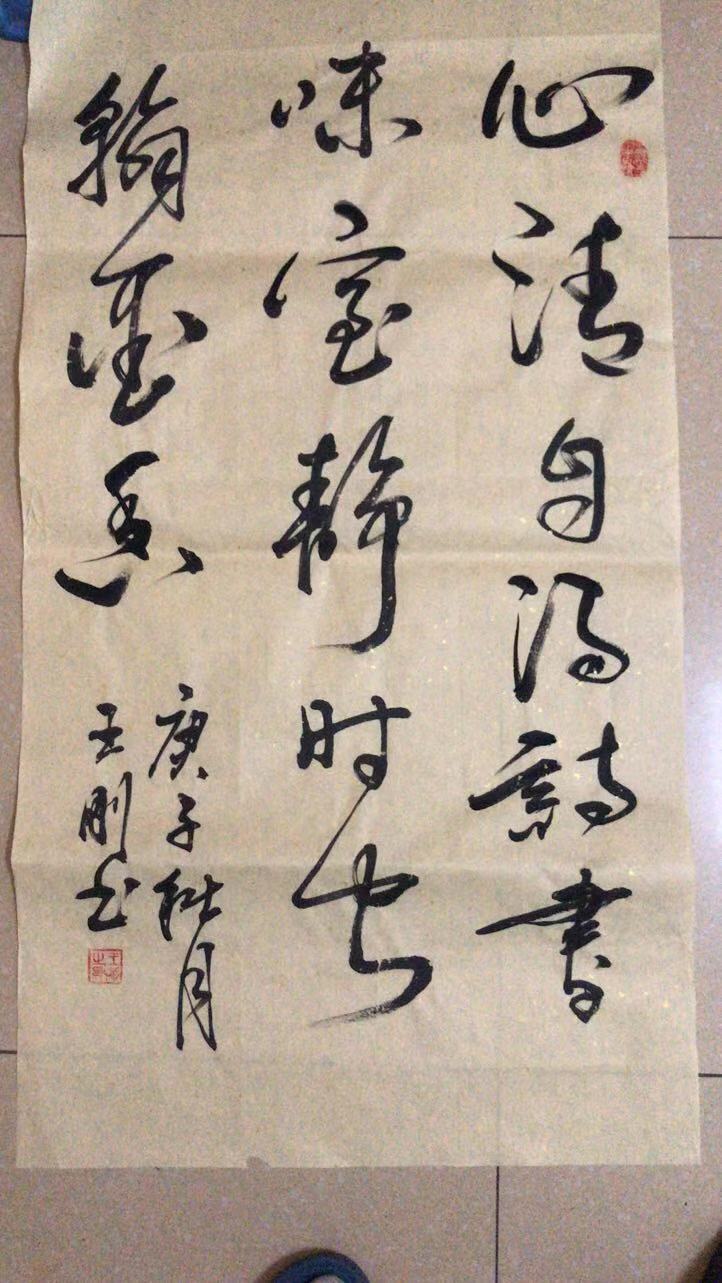 心清自得詩書
味室静时闻
翰墨香
庚子秋月
王刚书